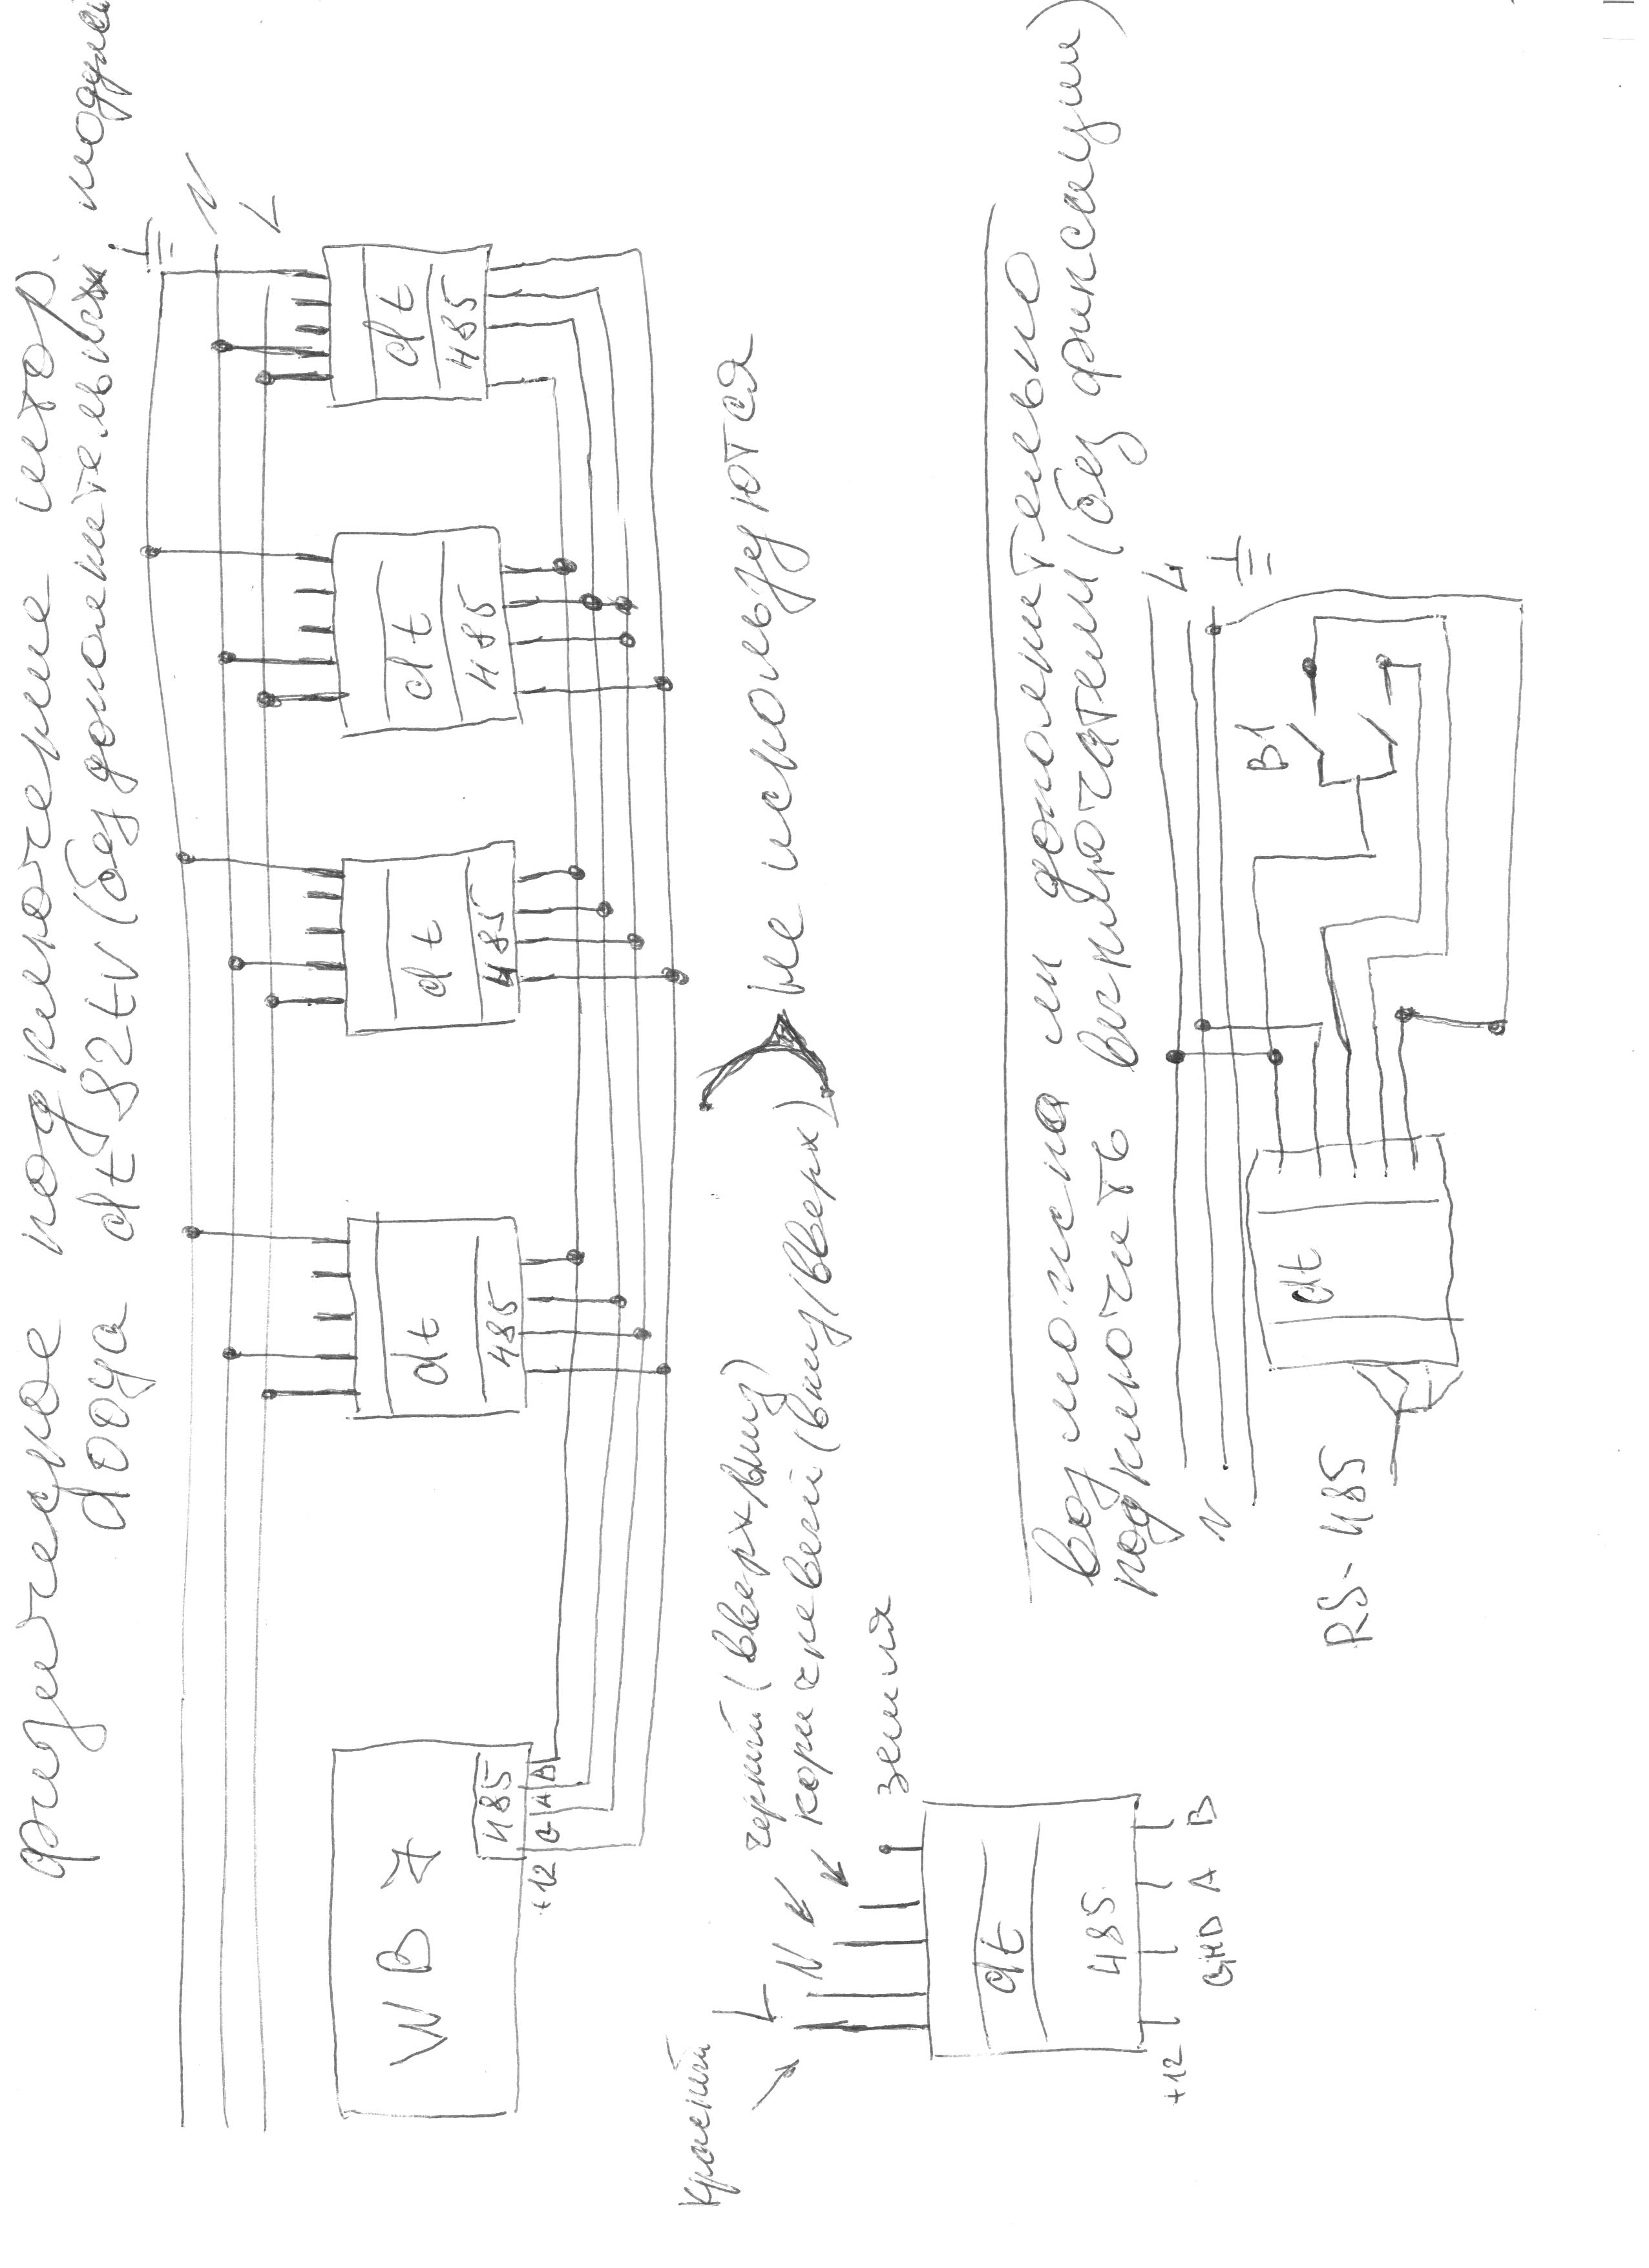 физическое подключение штор
dooya dt82tv (без дополнительных модулей
N
L
dt
485
dt
485
dt
485
dt
485
WB 7
485
+12 G A B
красный
L
N
черный (вверх/вниз)
коричневый (вниз/вверх)
не используются
земля
dt
485
+12 GND A B
возможна ли дополнительно
подключить выключатели (без фиксации)
N
L
B1
dt
RS-485